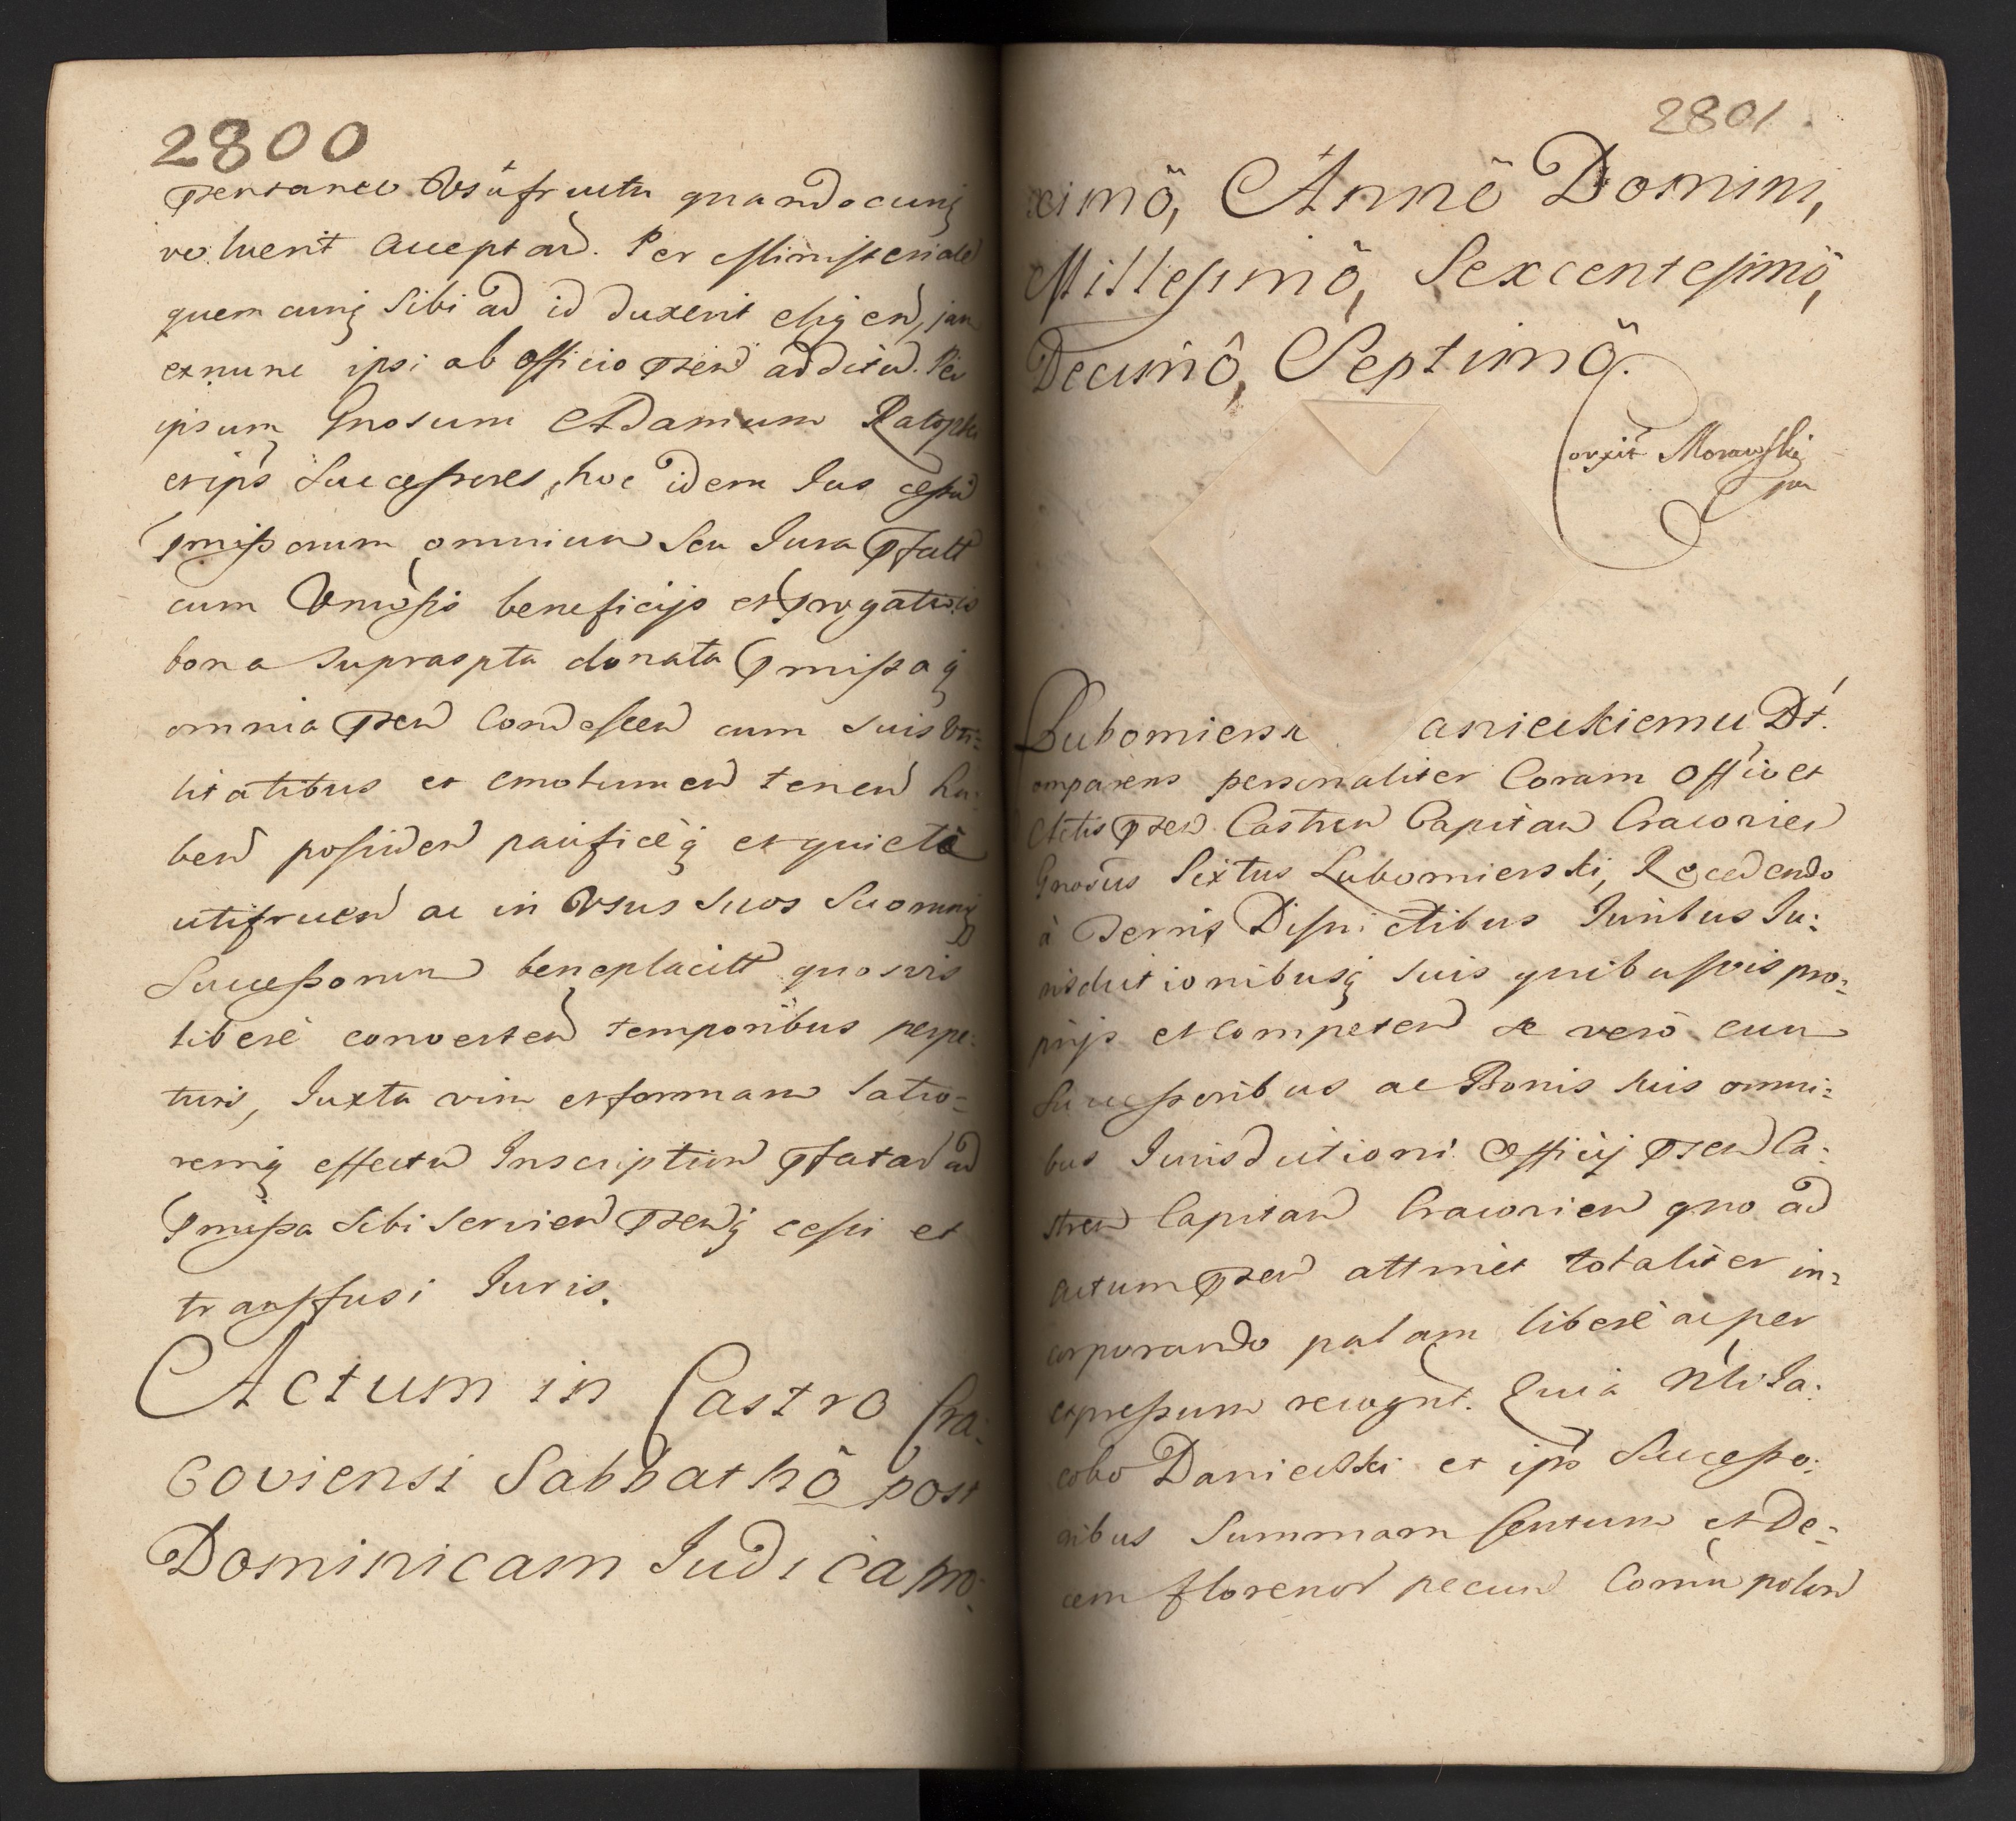 2800
Vsufructu quandocunq
voluerit acceptan. Per Ministeriale
quemcunq sibi ad id duxerit eligend, jam
exnunc ipsi ab officio pnen additu. Per
ipsum Gnosum Adamum
et ips Successores, hoc idem Ius cessu
pmissorum omnium seu Iura pfatt
cum Vniversis beneficijs et prrogativis
bona suprascpta donata pmissaq
omnia pnen Condescen cum suis vti=
litatibus et emolumen tenen ha:
ben possiden pacificeq et quietè
utifruen ac in Vsus suos Suorumq
Successorum beneplacitt quosvis
liberè converten temporibus perpe:
tuis, Iuxta vim et formam latio=
remq effectu Inscription pfatar ad
pmissa sibi servien pnenq cessi et
transfusi Iuris.
Actum in Castro Cra:
coviensi Sabbathô post
Dominicam Iudica pro:
2801
ximô, Annô Domini,
Millesimô, Sexcentesimô,
Decimô, Septimô.
corxit Morawski
mp
Lubomiersk anieckiemu Dt.
omparens personaliter Coram Offcio et
Actis pnen Castren Capitan Cracovien
Gnosus Sixtus Lubomierski, Recedendo
à Terris Districtibus Iuribus Iu:
risdictionibusq suis quibusvis pro:
prijs et competen de verò cum
Successoribus ac Bonis suis omni:
bus Iurisdictioni Officij pnen Ca:
stren Capitan Cracovien quo ad
actum pnen attinet totaliter in:
corporando palam liberè ac per
expressum recognt. Quia Nbli Ia:
cobo Daniecki et ips Successo:
ribus Summam Centum et De:
cem florenor pecun Comu polon